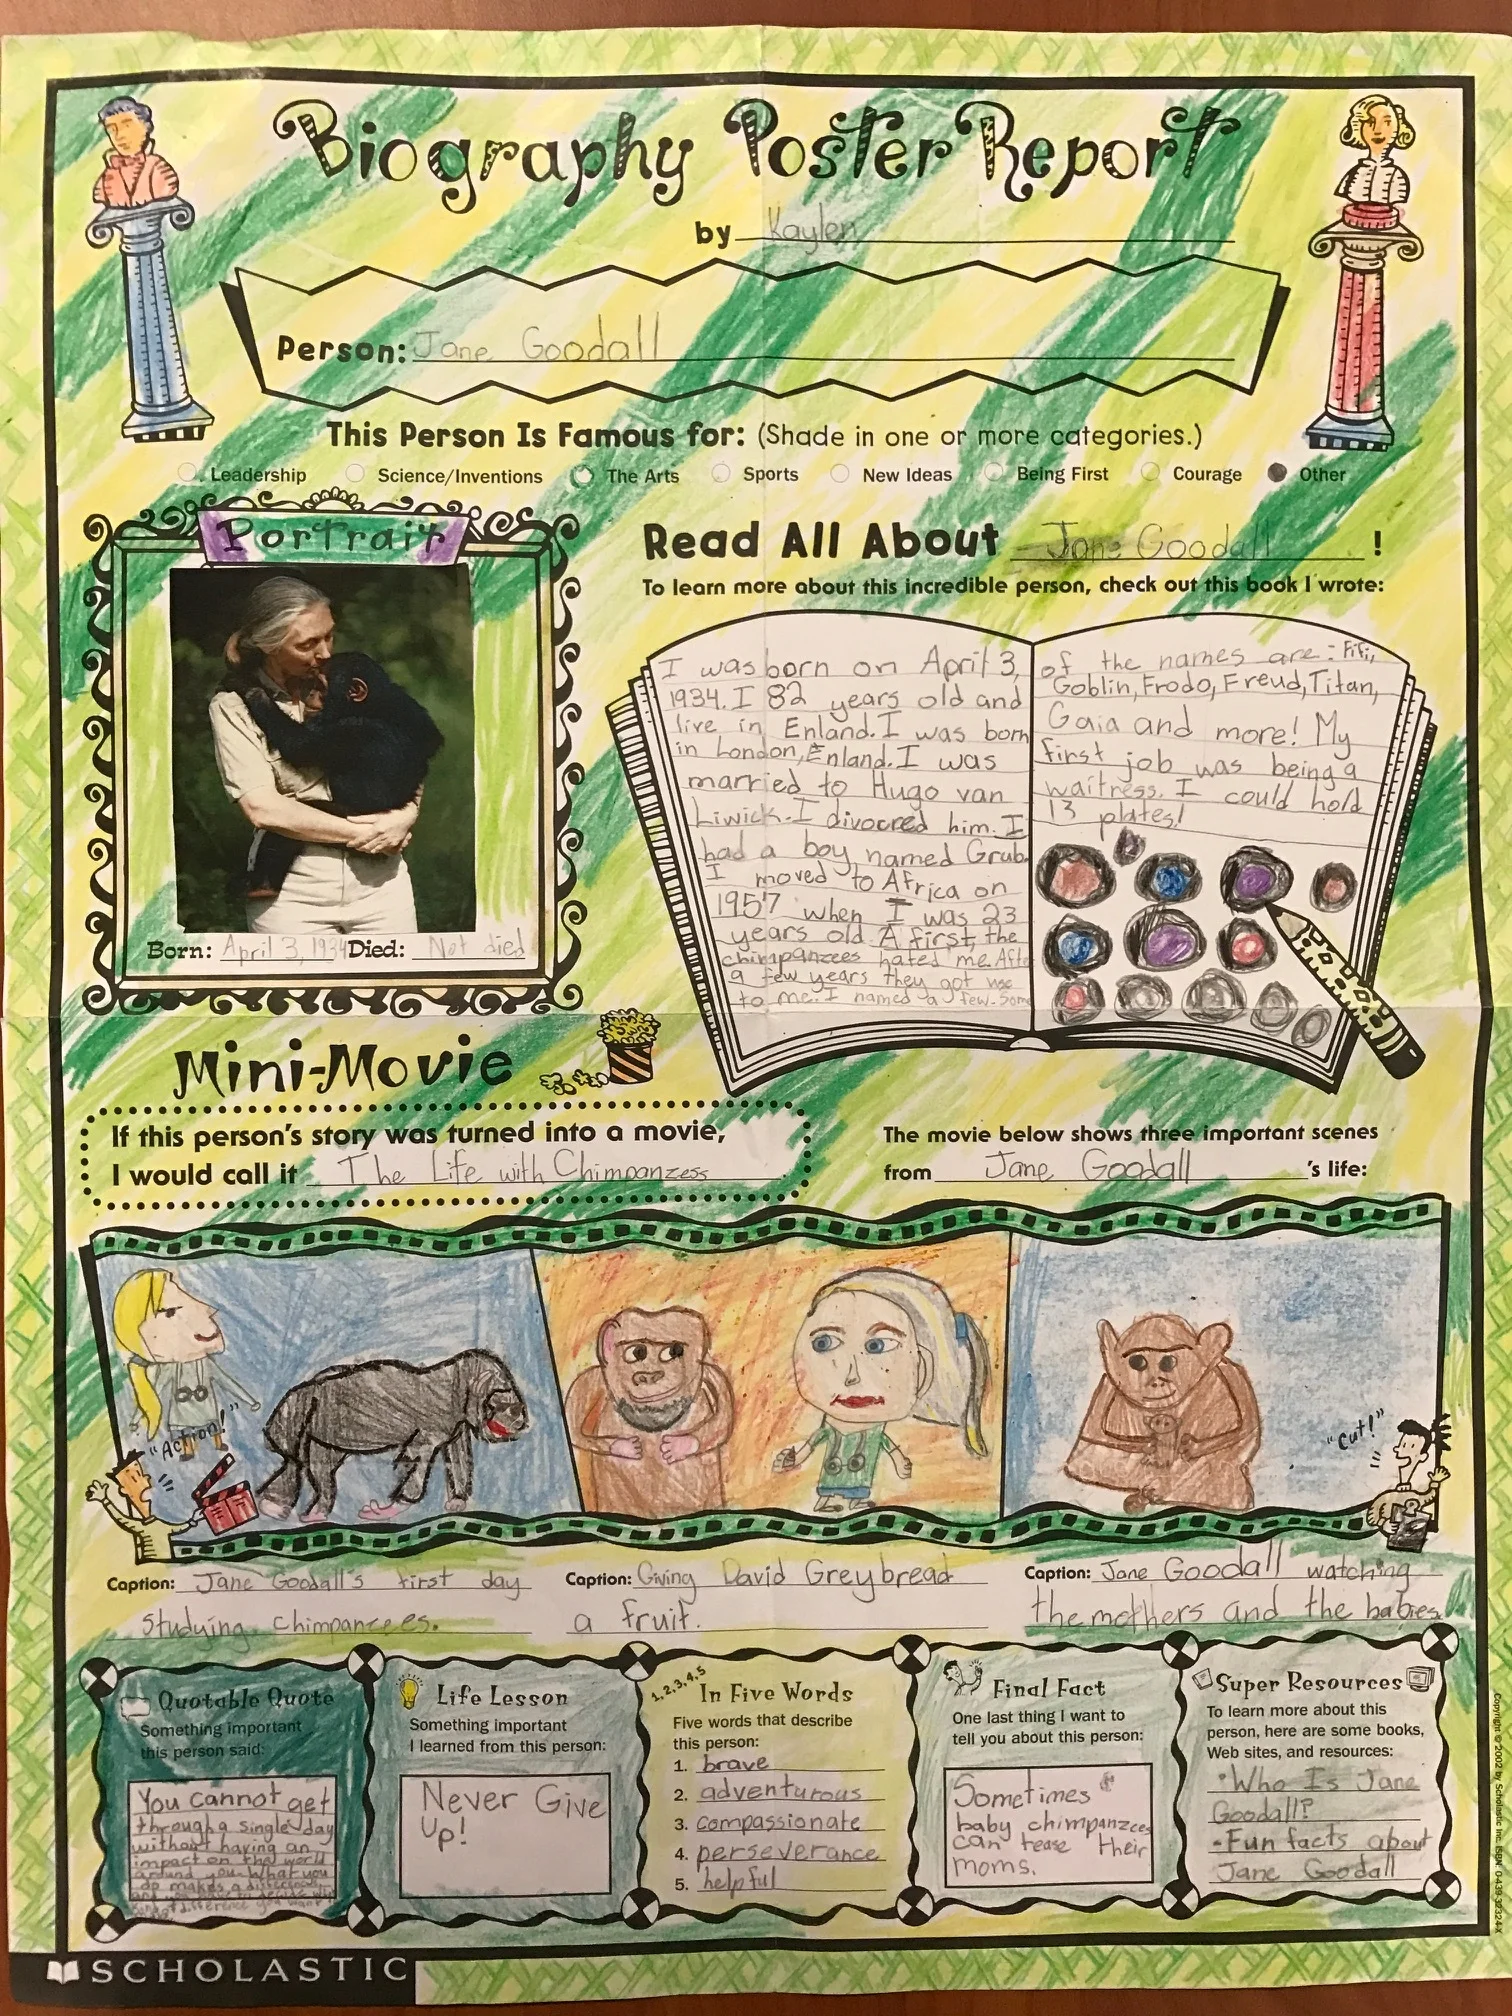 Biography Poster Report
by Kaylen
Person: Jane Goodall
This Person Is Famous for: (Shade in one or more categories.)
Leadership Science/Inventions The Arts Sports New Ideas Being First Courage Other
Portrait
Born: April 3, 1934 Died: Not died
Read All About Jane Goodall !
To learn more about this incredible person, check out this book I wrote:
I was born on April 3,
1934. I 82 years old and
live in Enland. I was born
in London, Enland. I was
married to Hugo van
Liwick. I divocred him. I
had a boy named Grub.
I moved to Africa on
1957 when I was 23
years old. A first, the
chimpanzees hated me. Afte
a few years they got use
to me. I named a few. Some
of the names are: Fifi,
Goblin, Frodo, Freud, Titan,
Gaia and more! My
first job was being a
waitress. I could hold
13 plates!
Mini-Movie
If this person's story was turned into a movie,
I would call it The Life with Chimpanzess
The movie below shows three important scenes
from Jane Goodall 's life:
"Action!"
"Cut!"
Caption: Jane Goodall's first day
studying chimpanzees.
Caption: Giving David Greybread
a fruit.
Caption: Jane Goodall watching
the mothers and the babies.
Quotable Quote
Something important
this person said:
You cannot get
through a single day
without having an
impact on the world
around you. What you
do makes a difference,
Life Lesson
Something important
I learned from this person:
Never Give
Up!
1,2,3,4,5
In Five Words
Five words that describe
this person:
1. brave
2. adventurous
3. compassionate
4. perseverance
5. helpful
Final Fact
One last thing I want to
tell you about this person:
Sometimes
baby chimpanzees
can tease their
moms.
Super Resources
To learn more about this
person, here are some books,
Web sites, and resources:
•Who Is Jane
Goodall?
-Fun facts about
Jane Goodall
Copyright © 2002 by Scholastic Inc. ISBN: 0-439-32324-X
SCHOLASTIC